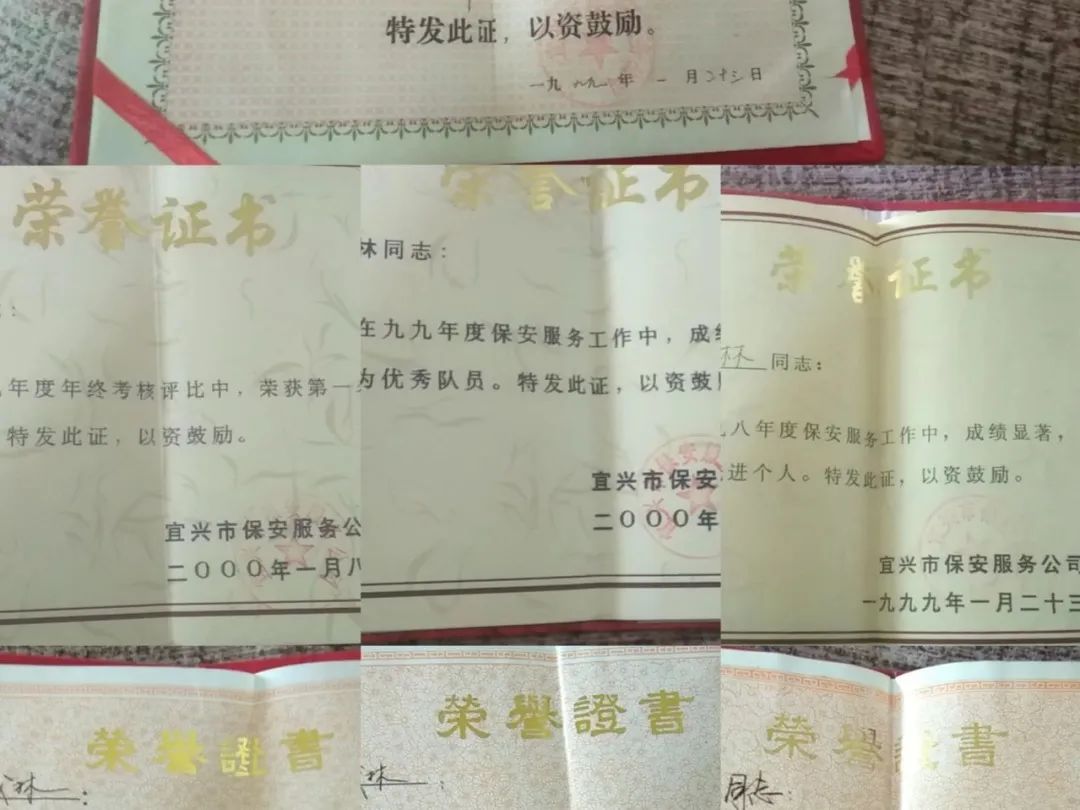 特发此证，以资鼓励。
一九九九年一月二十三日
荣誉证书
：
年度年终考核评比中，荣获第一
特发此证，以资鼓励。
宜兴市保安服务公
二〇〇〇年一月八
荣誉证书
林同志：
在九九年度保安服务工作中，成
为优秀队员。特发此证，以资鼓
宜兴市保安
二〇〇〇年
荣誉证书
林同志：
八年度保安服务工作中，成绩显著，
进个人。特发此证，以资鼓励。
宜兴市保安服务公司
一九九九年一月二十三
荣誉證書
林：
荣譽證書
林：
荣譽證書
同志：